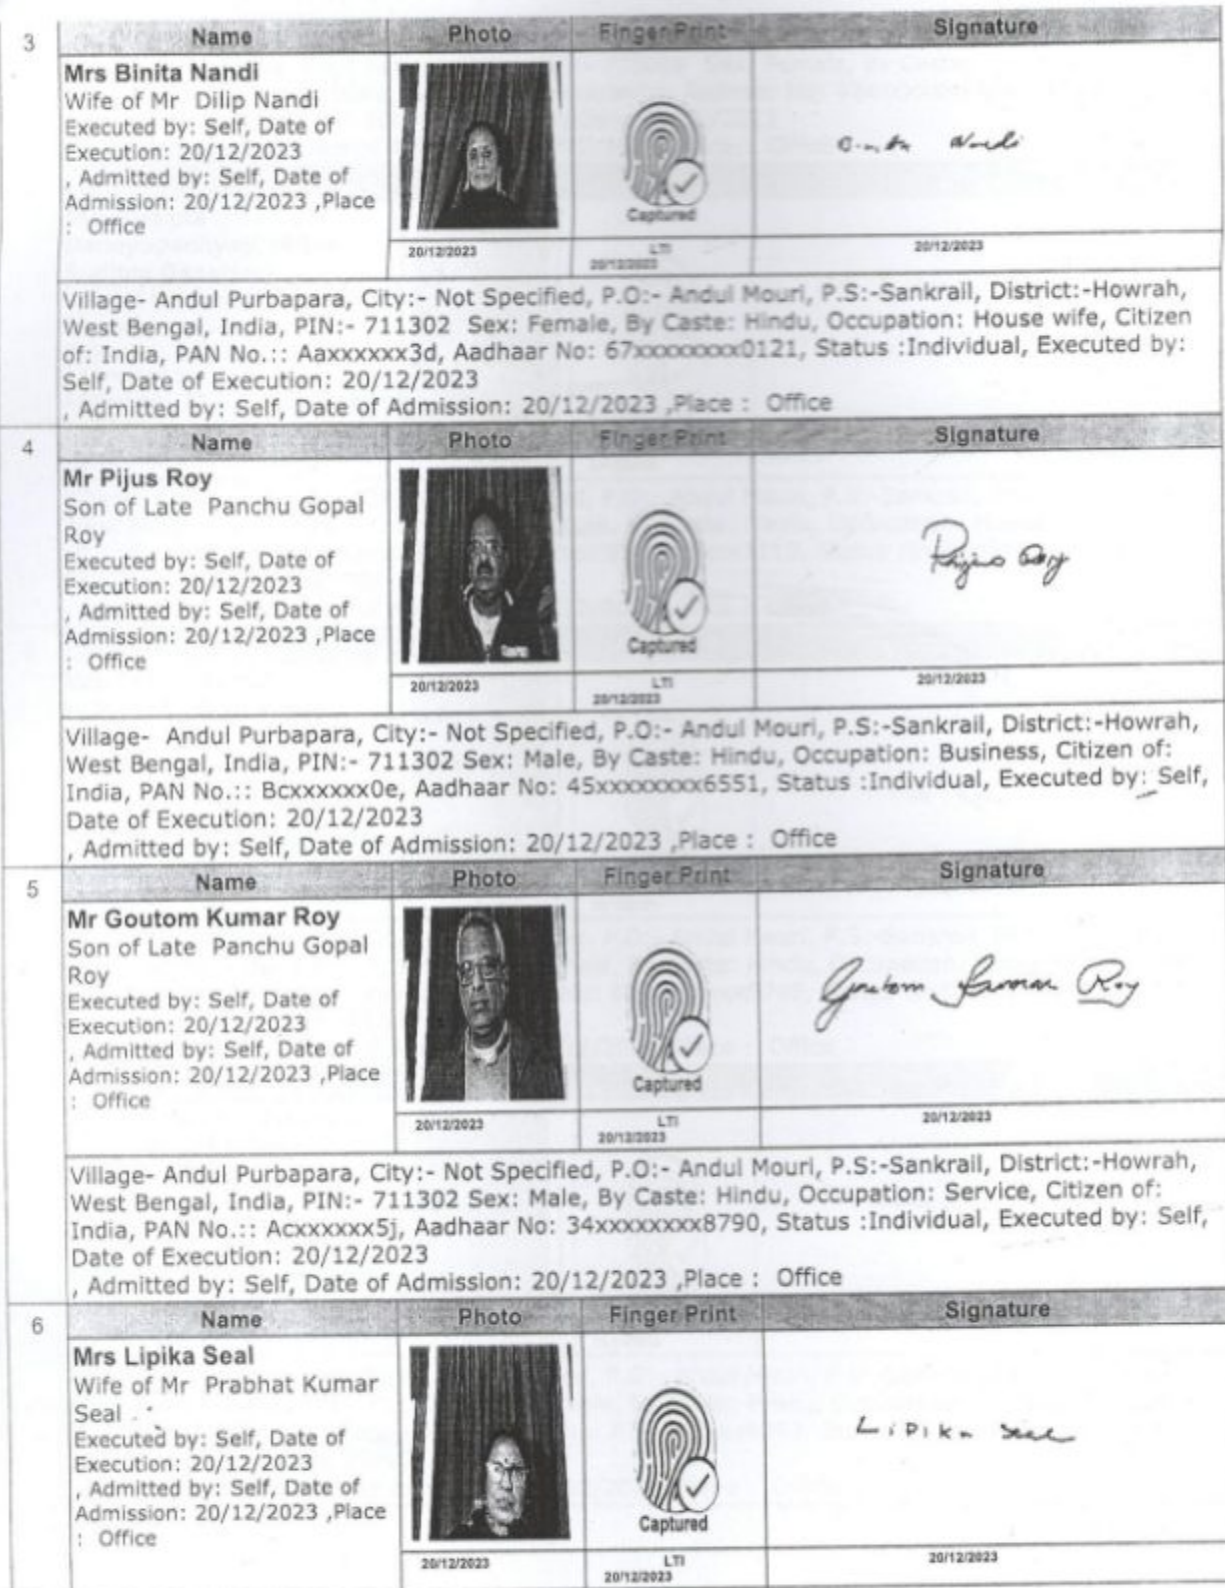 3
Name Photo Finger Print Signature
Mrs Binita Nandi
Wife of Mr Dilip Nandi
Executed by: Self, Date of
Execution: 20/12/2023
, Admitted by: Self, Date of
Admission: 20/12/2023 ,Place
: Office
Captured
Nandi
20/12/2023 LTI 20/12/2023
20/12/2023
Village- Andul Purbapara, City:- Not Specified, P.O:- Andul Mouri, P.S:-Sankrail, District:-Howrah,
West Bengal, India, PIN:- 711302 Sex: Female, By Caste: Hindu, Occupation: House wife, Citizen
of: India, PAN No.:: Aaxxxxxx3d, Aadhaar No: 67xxxxxxxx0121, Status :Individual, Executed by:
Self, Date of Execution: 20/12/2023
, Admitted by: Self, Date of Admission: 20/12/2023 ,Place : Office
4
Name Photo Finger Print Signature
Mr Pijus Roy
Son of Late Panchu Gopal
Roy
Executed by: Self, Date of
Execution: 20/12/2023
, Admitted by: Self, Date of
Admission: 20/12/2023 ,Place
: Office
Captured
Pijus Roy
20/12/2023 LTI 20/12/2023
20/12/2023
Village- Andul Purbapara, City:- Not Specified, P.O:- Andul Mouri, P.S:-Sankrail, District:-Howrah,
West Bengal, India, PIN:- 711302 Sex: Male, By Caste: Hindu, Occupation: Business, Citizen of:
India, PAN No.:: Bcxxxxxx0e, Aadhaar No: 45xxxxxxxx6551, Status :Individual, Executed by: Self,
Date of Execution: 20/12/2023
, Admitted by: Self, Date of Admission: 20/12/2023 ,Place : Office
5
Name Photo Finger Print Signature
Mr Goutom Kumar Roy
Son of Late Panchu Gopal
Roy
Executed by: Self, Date of
Execution: 20/12/2023
, Admitted by: Self, Date of
Admission: 20/12/2023 ,Place
: Office
Captured
Goutom Kumar Roy
20/12/2023 LTI 20/12/2023
20/12/2023
Village- Andul Purbapara, City:- Not Specified, P.O:- Andul Mouri, P.S:-Sankrail, District:-Howrah,
West Bengal, India, PIN:- 711302 Sex: Male, By Caste: Hindu, Occupation: Service, Citizen of:
India, PAN No.:: Acxxxxxx5j, Aadhaar No: 34xxxxxxxx8790, Status :Individual, Executed by: Self,
Date of Execution: 20/12/2023
, Admitted by: Self, Date of Admission: 20/12/2023 ,Place : Office
6
Name Photo Finger Print Signature
Mrs Lipika Seal
Wife of Mr Prabhat Kumar
Seal
Executed by: Self, Date of
Execution: 20/12/2023
, Admitted by: Self, Date of
Admission: 20/12/2023 ,Place
: Office
Captured
Lipika Seal
20/12/2023 LTI 20/12/2023
20/12/2023